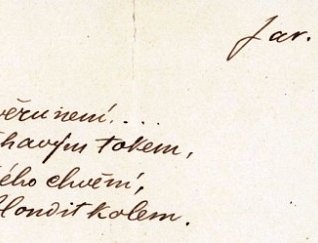 Jar.
věru není...
havým tokem,
ého chvění,
londit kolem.